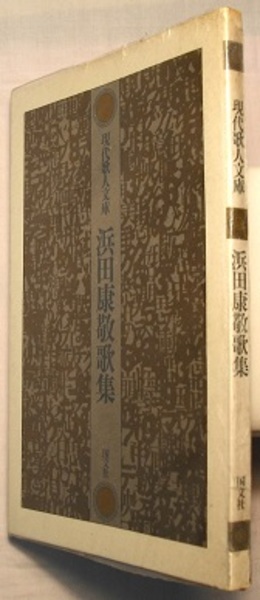 現代歌人文庫
浜田康敬歌集
国文社
現代歌人文庫
浜田康敬歌集
国文社